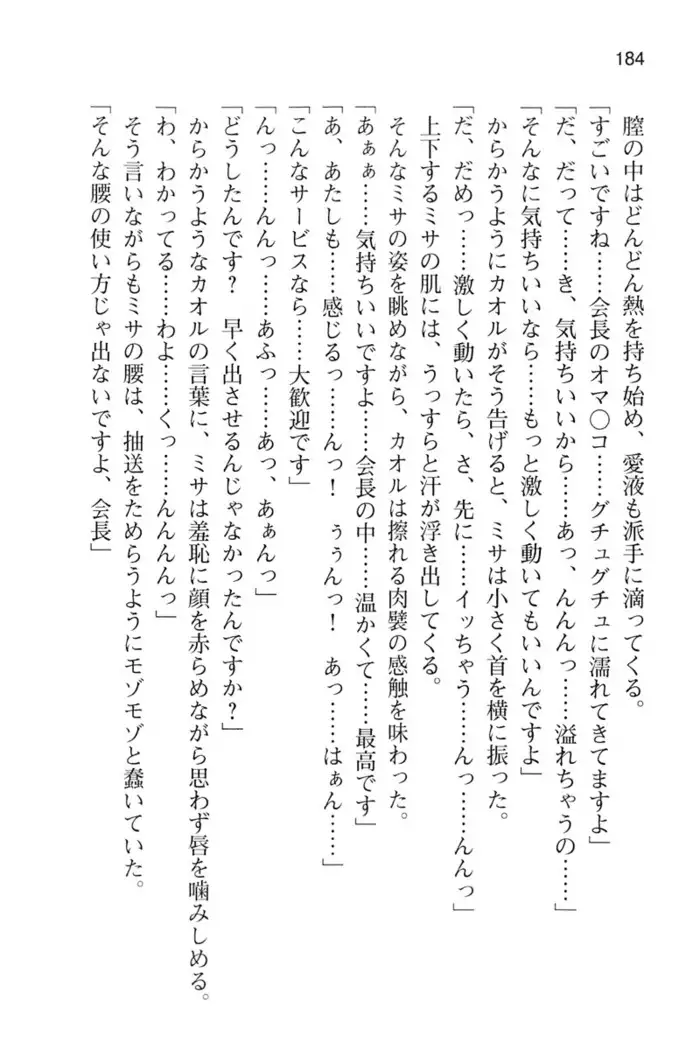 184
膣の中はどんどん熱を持ち始め、愛液も派手に滴ってくる。
「すごいですね……会長のオマ〇コ……グチュグチュに濡れてきてますよ」
「だ、だって……き、気持ちいいから……あっ、んんんっ……溢れちゃうの……」
「そんなに気持ちいいなら……もっと激しく動いてもいいんですよ」
からかうようにカオルがそう告げると、ミサは小さく首を横に振った。
「だ、だめっ……激しく動いたら、さ、先に……イッちゃう……んっ……んんっ」
上下するミサの肌には、うっすらと汗が浮き出してくる。
そんなミサの姿を眺めながら、カオルは擦れる肉襞の感触を味わった。
「あぁぁ……気持ちいいですよ……会長の中……温かくて……最高です」
「あ、あたしも……感じるっ……んっ！　ぅぅんっ！　あっ……はぁん……」
「こんなサービスなら……大歓迎です」
「んっ……んんっ……あふっ……あっ、あぁんっ」
「どうしたんです？　早く出させるんじゃなかったんですか？」
からかうようなカオルの言葉に、ミサは羞恥に顔を赤らめながら思わず唇を噛みしめる。
「わ、わかってる……わよ……くっ……んんんんっ」
そう言いながらもミサの腰は、抽送をためらうようにモゾモゾと蠢いていた。
「そんな腰の使い方じゃ出ないですよ、会長」